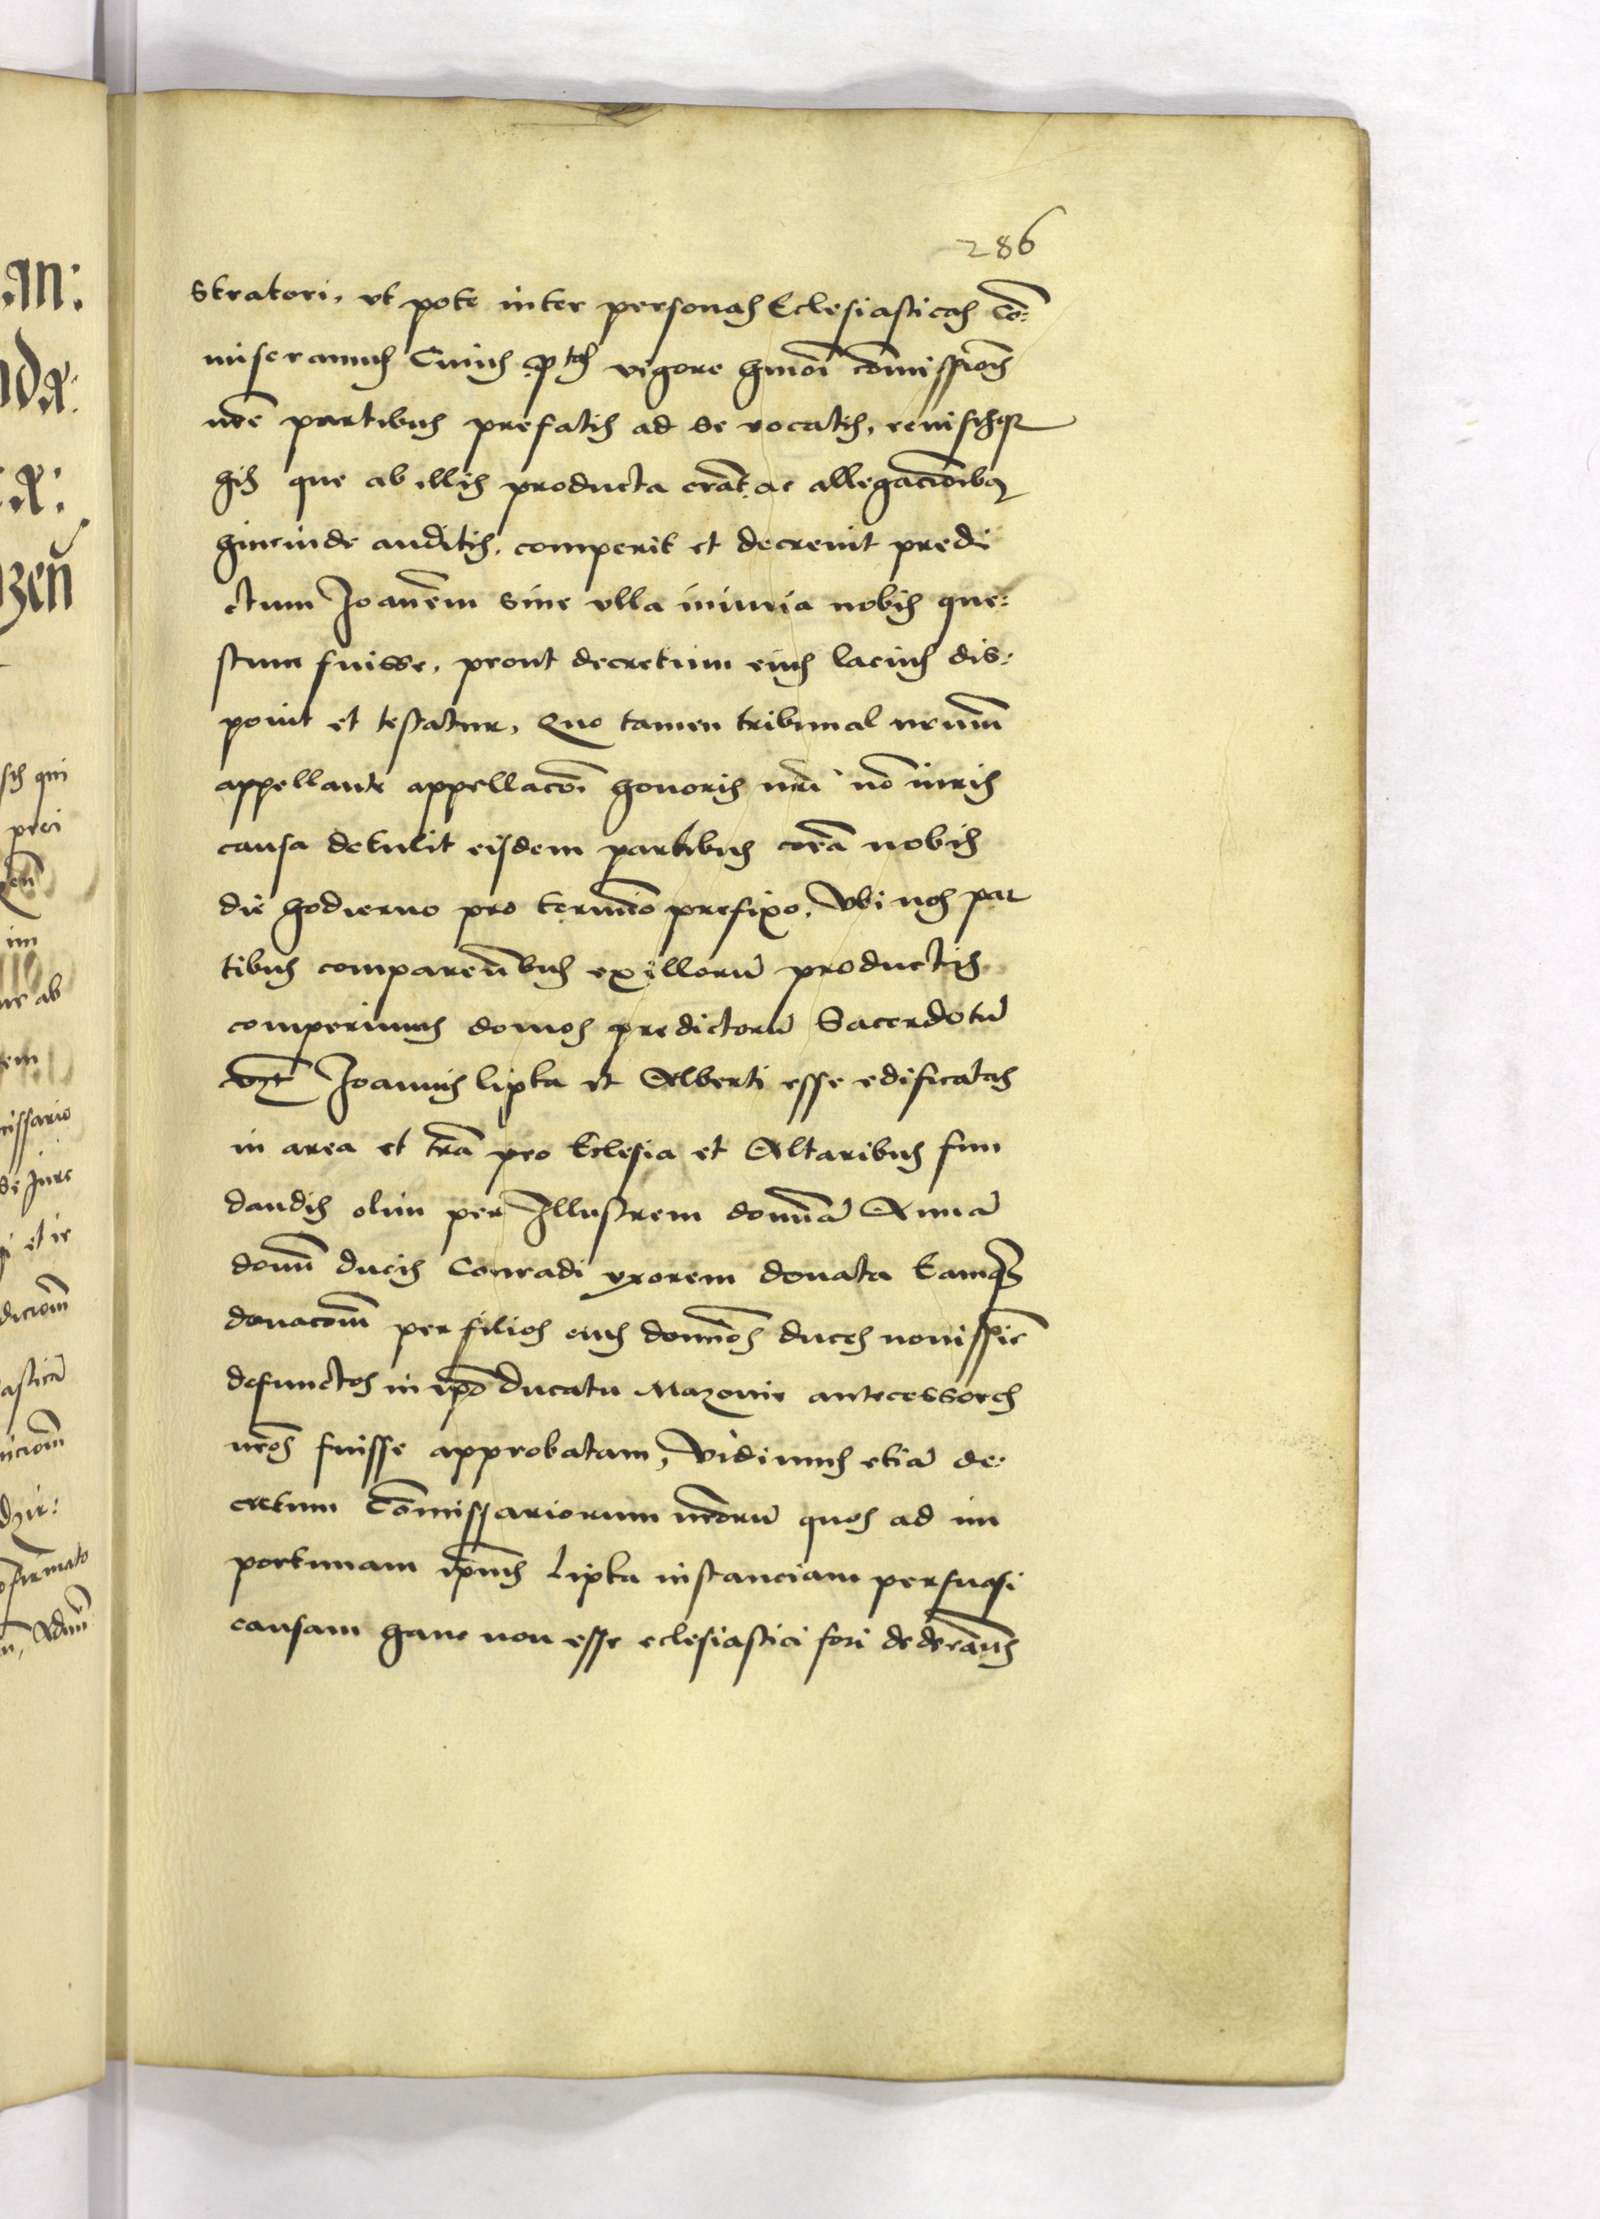 286
stratori, vt pote inter personas Eclesiasticas co:
miseramus Cuius ptas vigore hmoi comissionis
nre partibus prefatis ad se vocatis, reuisisq
his que ab illis producta erat ac allegacionibq
hincinde auditis, comperit et decreuit predi
ctum Joanem sine vlla iniuria nobis que:
stum fuisse, prout decretum eius lacius dis:
ponit et testatur, Quo tamen tribunal nrum
appellante appellacoi honoris nri no iuris
causa detulit eisdem partibus cora nobis
die hodierno pro termino prefixo, Vbi nos par
tibus comparentibus ex illoru productis
comperimus domos predictoru Sacerdotu
vzt Joannis lipka et Alberti esse edificatas
in area et tra pro Eclesia et Altaribus fun
dandis olim per Illustrem domina Anna
domini ducis Conradi vxorem donata Eamqz
donacom per filios eius dominos duces nouissie
defunctos in ipo ducatu Mazouie antecessores
nros fuisse approbatam, Vidimus etia de:
cretum Comissariorum nroru quos ad im
portunam ipius Lipka instanciam persuasi
causam hanc non esse eclesiastici fori dederamus